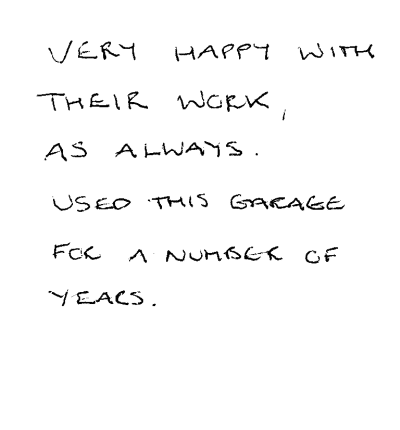 VERY HAPPY WITH
THEIR WORK,
AS ALWAYS.
USED THIS GARAGE
FOR A NUMBER OF
YEARS.